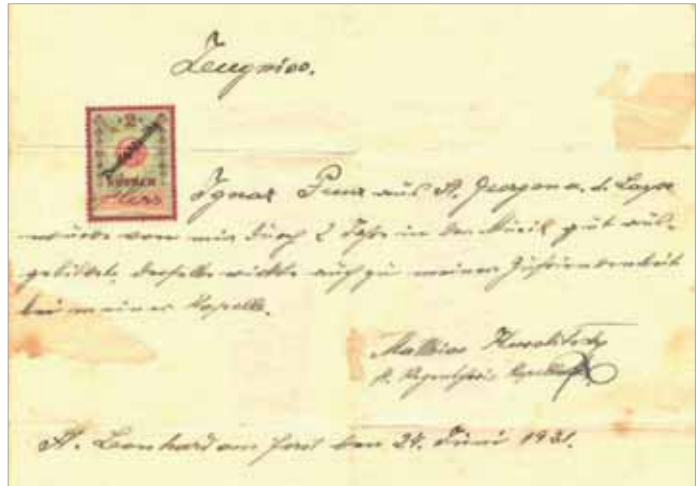 Zeugniss.
2
Ignaz Penz aus St. Georgen a. d. Leys
wurde von mir durch 2 Jahre in der Musik gut aus-
gebildet, derselbe wirkte auch zu meiner Zufriedenheit
bei meiner Kapelle.
Mathias
St. Leonhard am Forst den 24. Juni 1931.